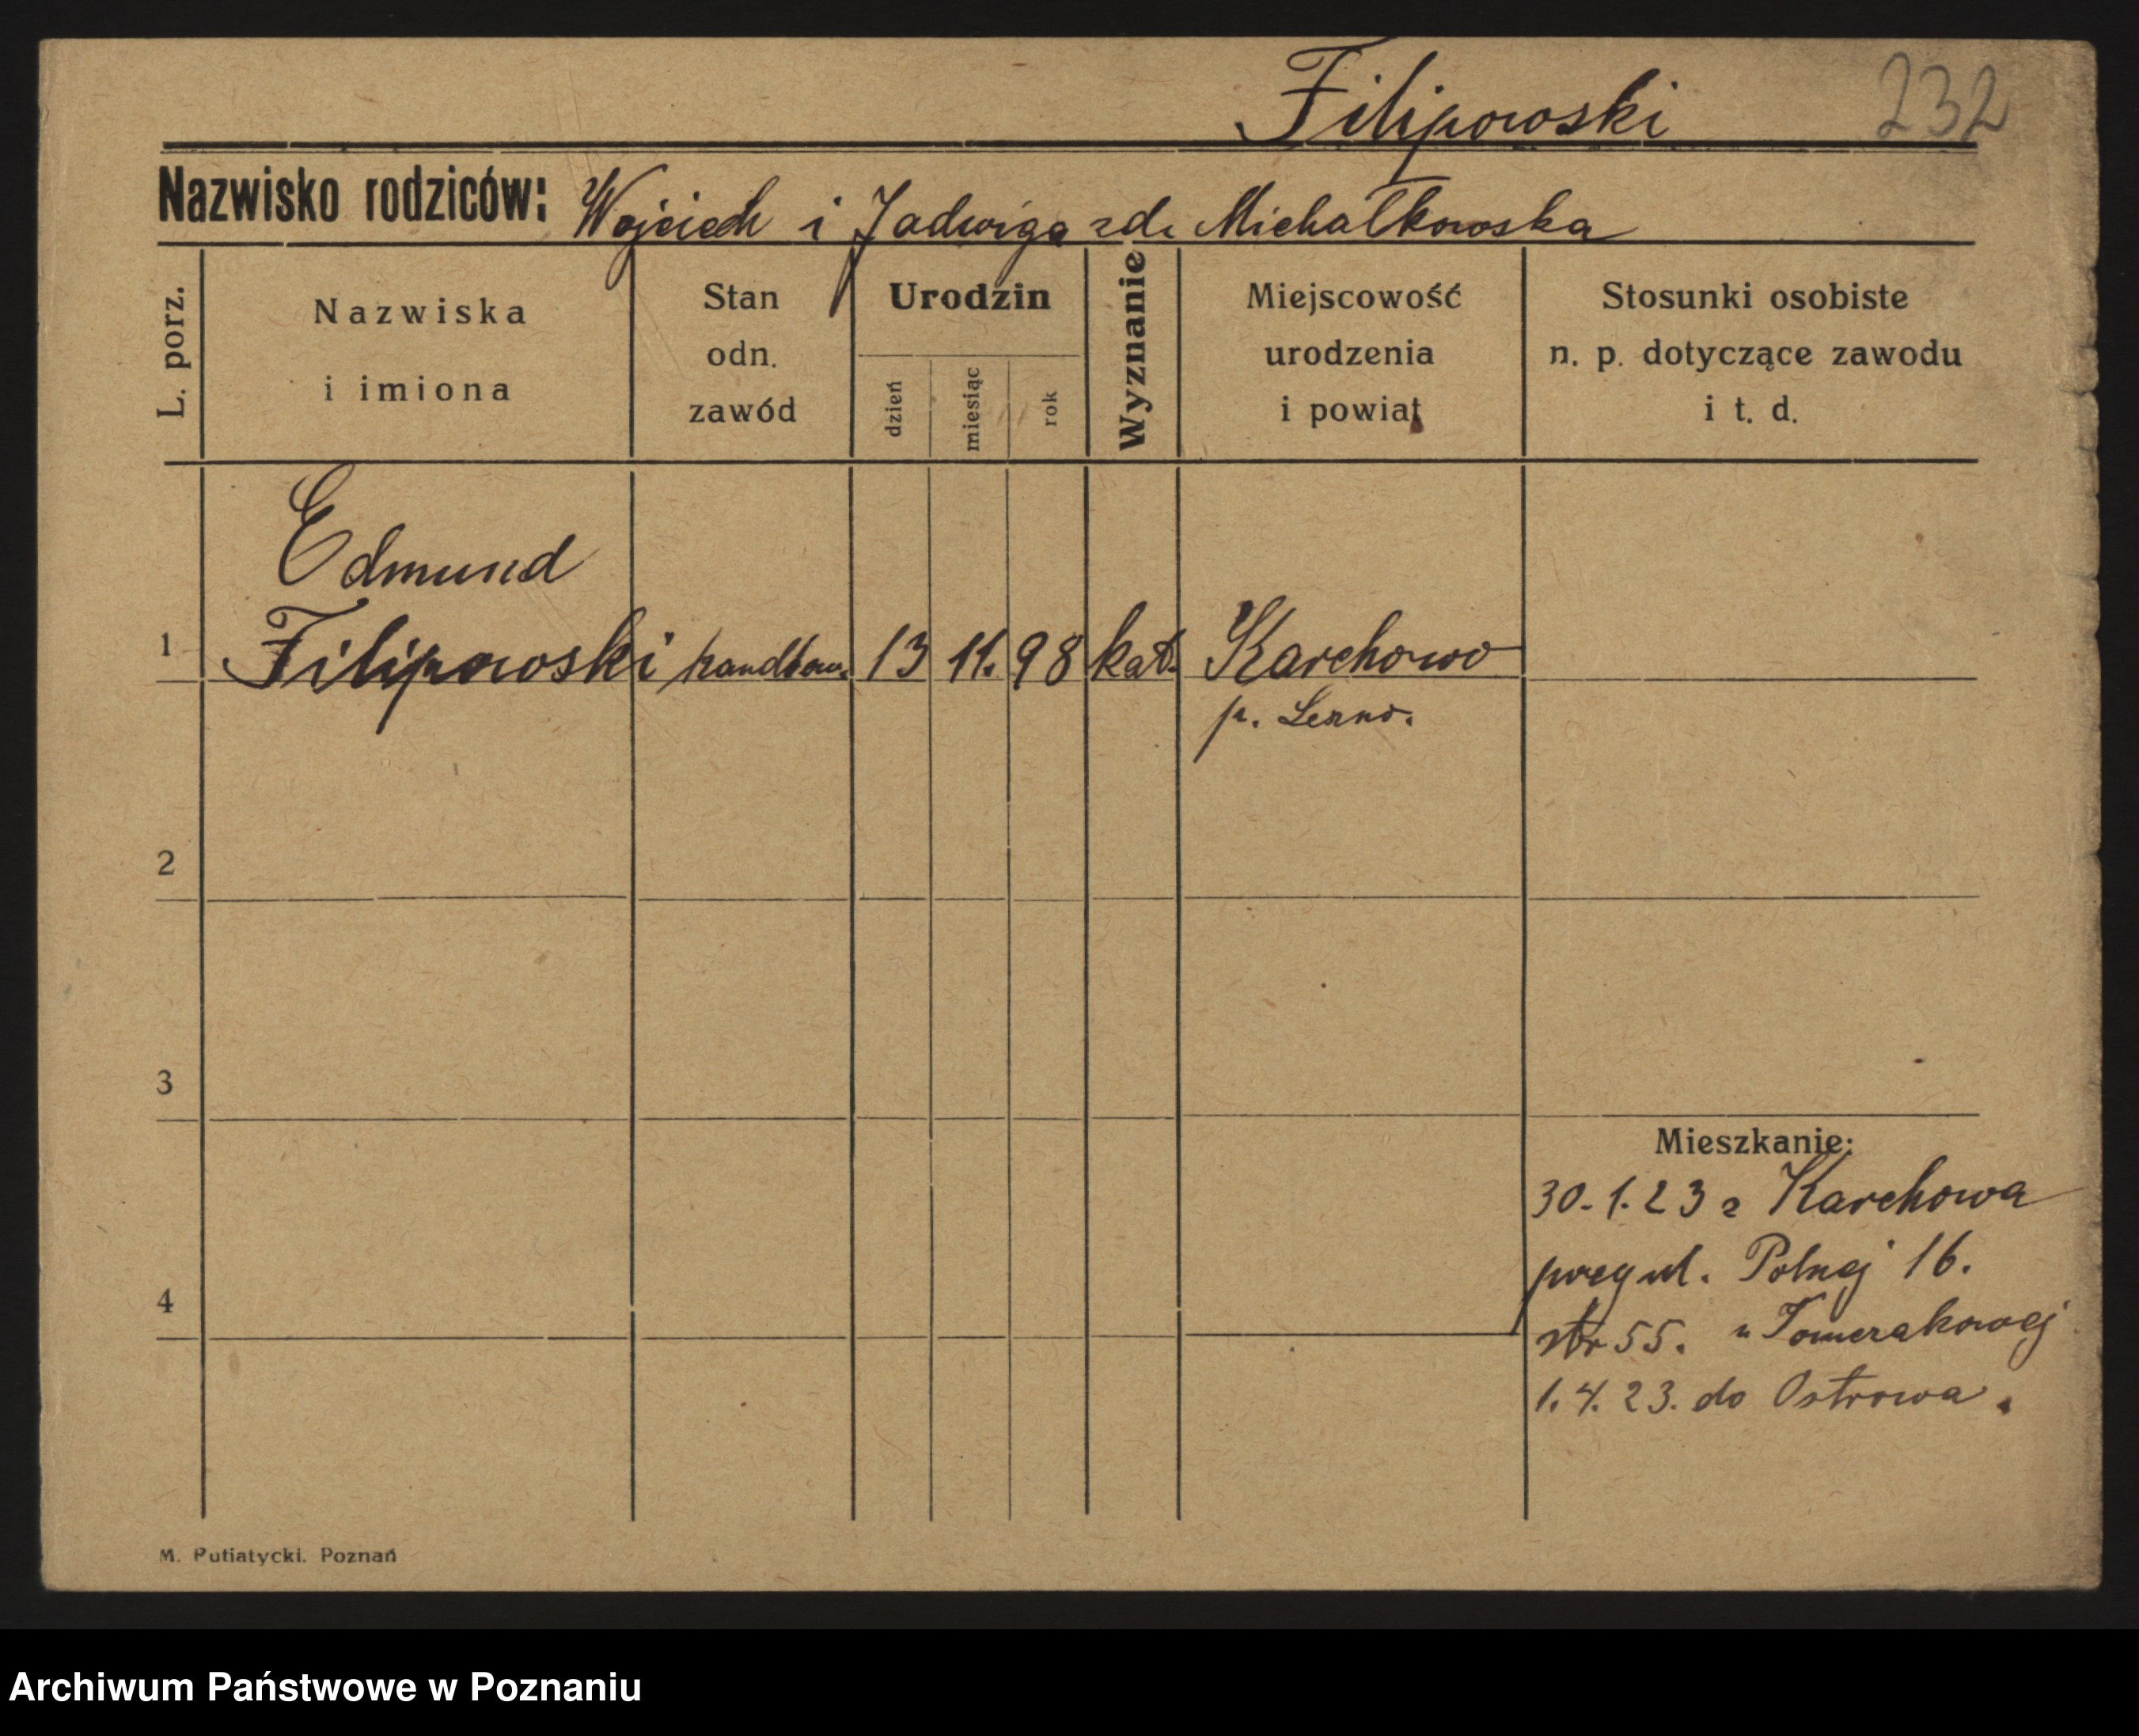 Filipowski 232
Nazwisko rodziców: Wojciech i Jadwiga zd. Michałkowska
L. porz.
Nazwiska
i imiona
Stan
odn.
zawód
Urodzin
dzień
miesiąc
rok
Wyznanie
Miejscowość
urodzenia
i powiat
Stosunki osobiste
n. p. dotyczące zawodu
i t. d.
Edmund
1 Filipowski 13 11. 98 kat. Karchowo
p. Leszno.
2
3
Mieszkanie:
30.1.23 z Karchowa
przy ul. Polnej 16.
4
55. u
1.4.23. do Ostrowa.
M. Putiatycki. Poznań
Archiwum Państwowe w Poznaniu